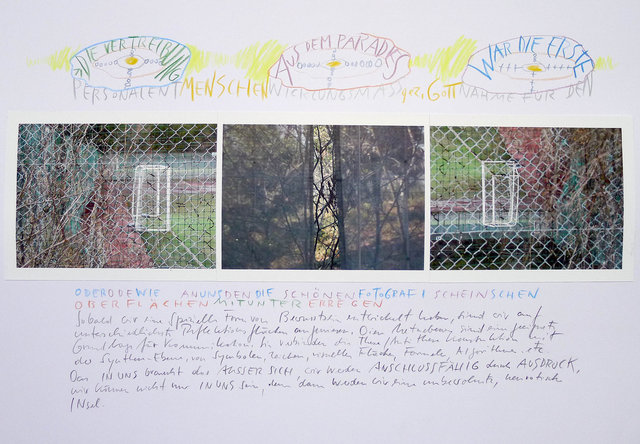 DIE VERTREIBUNG AUS DEM PARADIES WAR DIE ERSTE
PERSONALENT MENSCHEN WICKLUNGSMASS GOTT NAHME FÜR DEN
ODERODEWIE ANUNSDENDIE SCHÖNENFOTOGRAFI SCHEINSCHEN
OBERFLÄCHEN MITUNTER ERREGEN
Sobald wir eine spezielle Form von Bewusstsein entwickelt haben, sind wir auf
unterschiedlichste Reflektionsflächen angewiesen. Diese
Grundlage für Kommunikation. die These/Anti These
der Synthese-Ebene, von Symbolen, Zeichen, visuelle Fläche, Formeln, Algorithmen, etc
Das IN UNS braucht das AUSSER SICH wir werden ANSCHLUSSFÄHIG durch AUSDRUCK,
wir können nicht nur IN UNS sein, denn dann werden wir eine unbewohnte, neurotische
INsel.